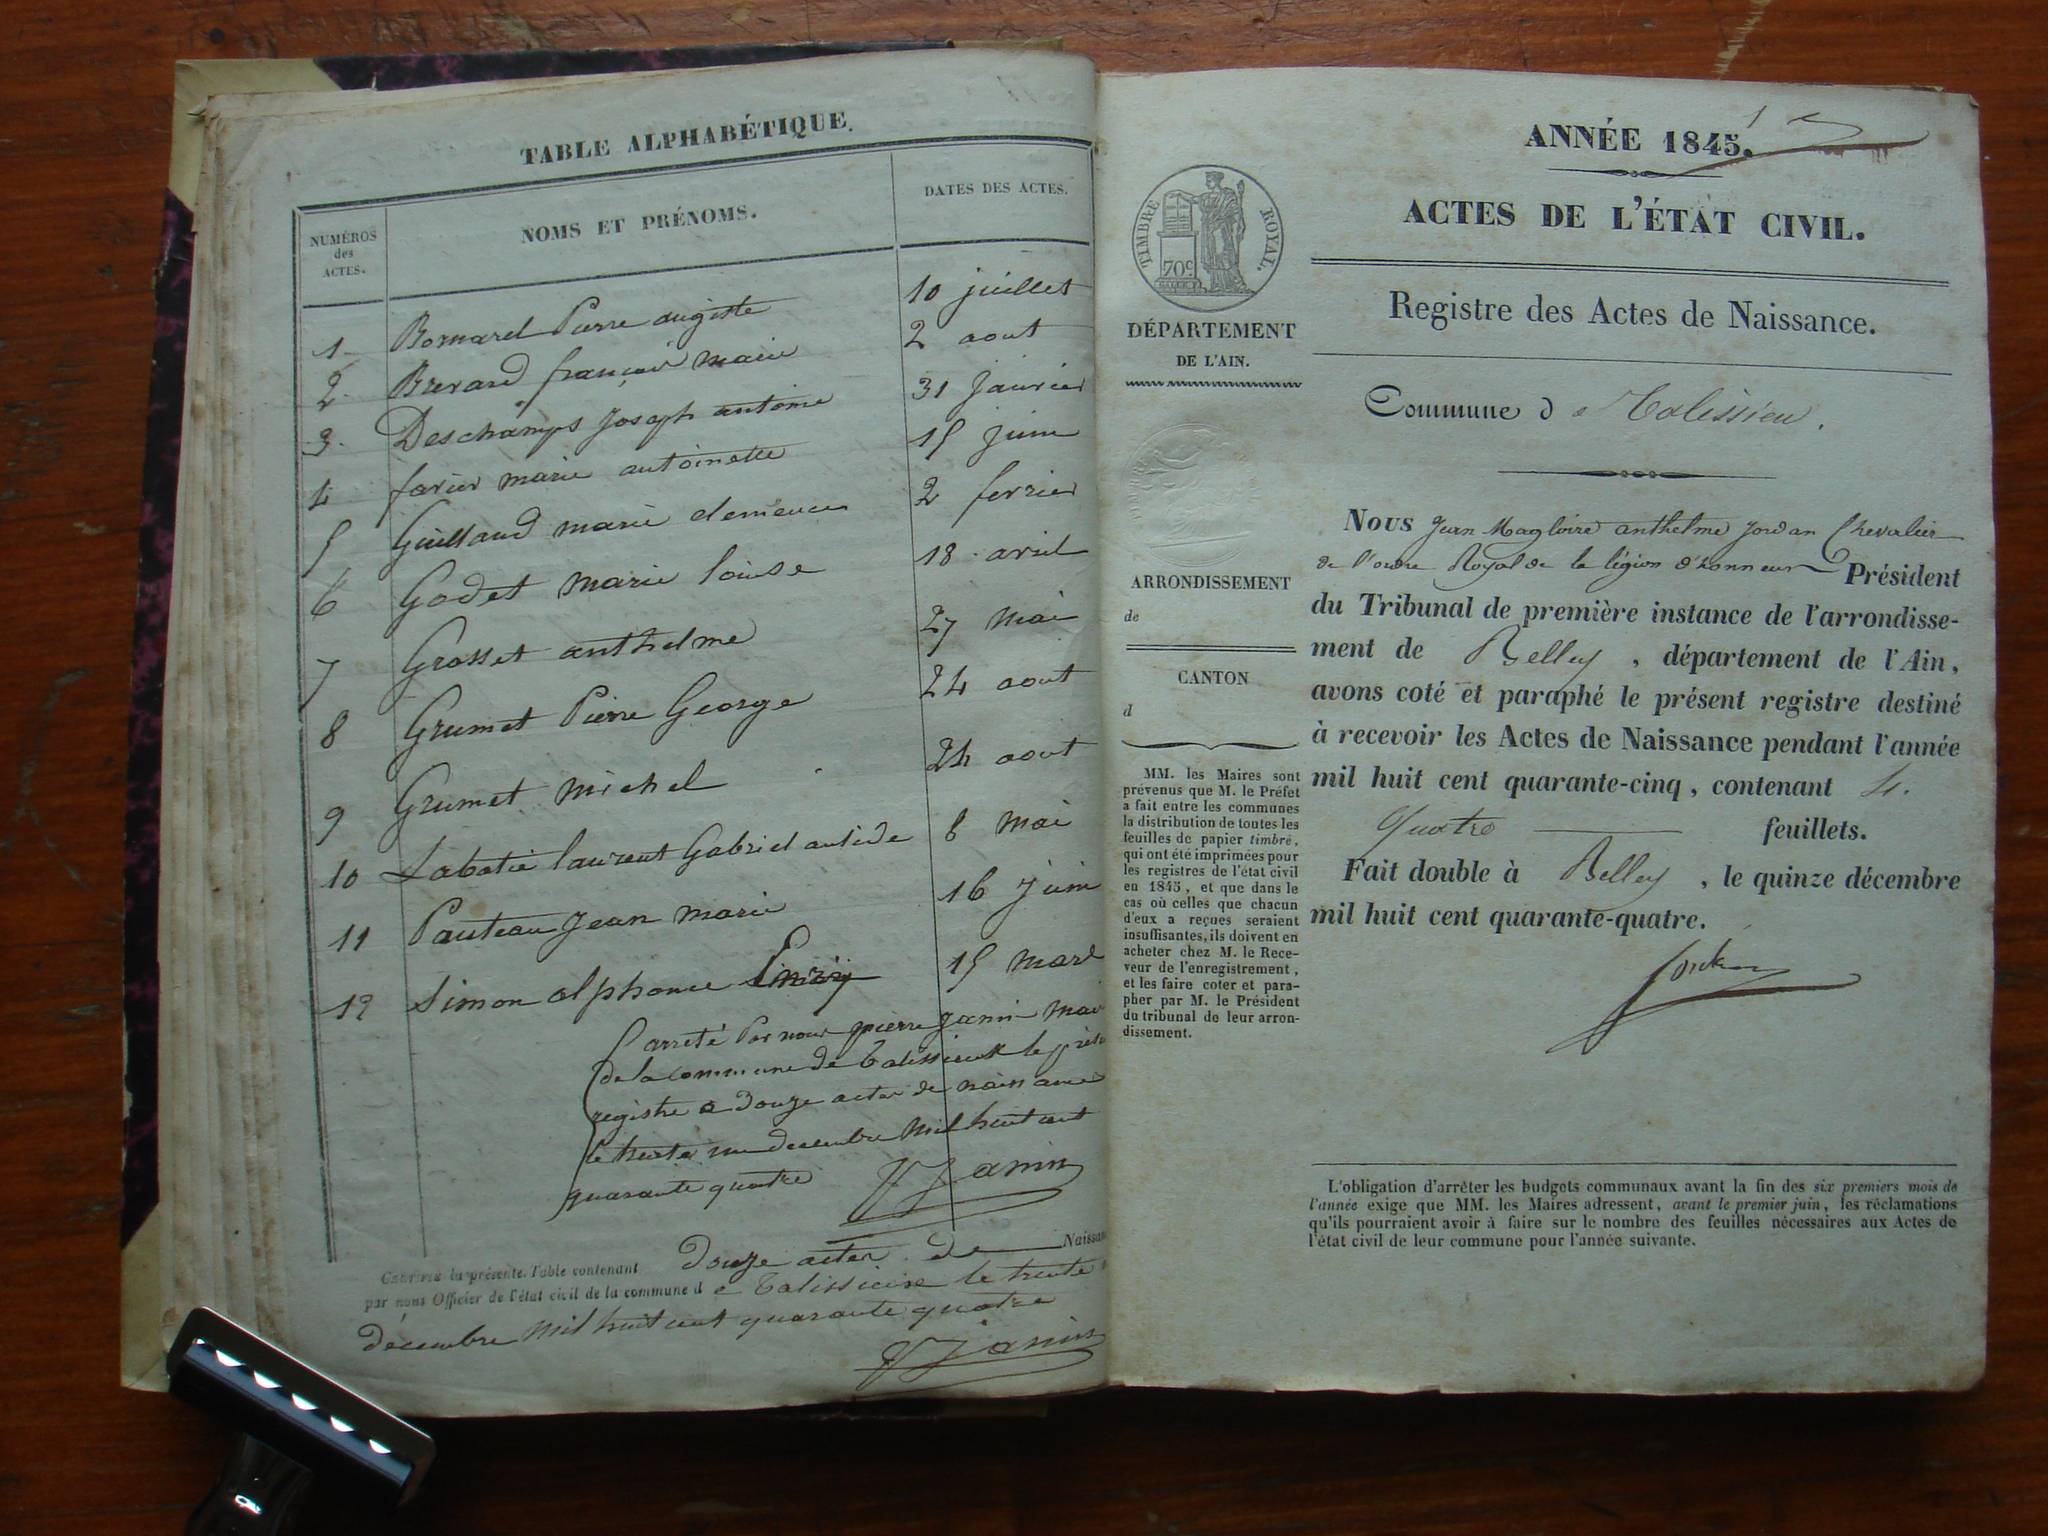 TABLE ALPHABÉTIQUE.
NUMÉROS des ACTES.
NOMS ET PRÉNOMS.
DATES DES ACTES.
1 Bornarel Pierre augiste 10 juillet
2 Brevard françois marie 2 aout
3 Deschamps Joseph antoine 31 janvier
4 favier marie antoinette 15 juin
5 Guilland marie clemence 2 fevrier
6 Godet marie louise 18 avril
7 Grosset anthelme 27 mai
8 Grumet Pierre George 24 aout
9 Grumet michel 24 aout
10 Labatie laurent Gabriel antide 8 mai
11 Pauteau Jean marie 16 juin
12 Simon alphonce 15 mars
arreté Par nous pierre janin
de la commune de talissieux le
registre a douze actes de
le trente un decembre mil huit cent
quarante quatre Janin
Certifié la présente Table contenant douze actes de Naissan
par nous Officier de l'état civil de la commune d e le trente
décembre mil huit cent quarante quatre
Janin
1
ANNÉE 1845.
ACTES DE L'ÉTAT CIVIL.
Registre des Actes de Naissance.
Commune d e Talissieu.
TIMBRE ROYAL.
70c
DÉPARTEMENT
DE L'AIN.
ARRONDISSEMENT
de
CANTON
d
MM. les Maires sont
prévenus que M. le Préfet
a fait entre les communes
la distribution de toutes les
feuilles de papier timbré,
qui ont été imprimées pour
les registres de l'état civil
en 1845, et que dans le
cas où celles que chacun
d'eux a reçues seraient
insuffisantes, ils doivent en
acheter chez M. le Rece-
veur de l'enregistrement,
et les faire coter et para-
pher par M. le Président
du tribunal de leur arron-
dissement.
Nous Jean Magloire anthelme Jordan Chevalier
de l'ordre Royal de la légion d'honneur Président
du Tribunal de première instance de l'arrondisse-
ment de Belley, département de l'Ain,
avons coté et paraphé le présent registre destiné
à recevoir les Actes de Naissance pendant l'année
mil huit cent quarante-cinq, contenant 4.
Quatre feuillets.
Fait double à Belley, le quinze décembre
mil huit cent quarante-quatre.
Jordan
L'obligation d'arrêter les budgets communaux avant la fin des six premiers mois de
l'année exige que MM. les Maires adressent, avant le premier juin, les réclamations
qu'ils pourraient avoir à faire sur le nombre des feuilles nécessaires aux Actes de
l'état civil de leur commune pour l'année suivante.